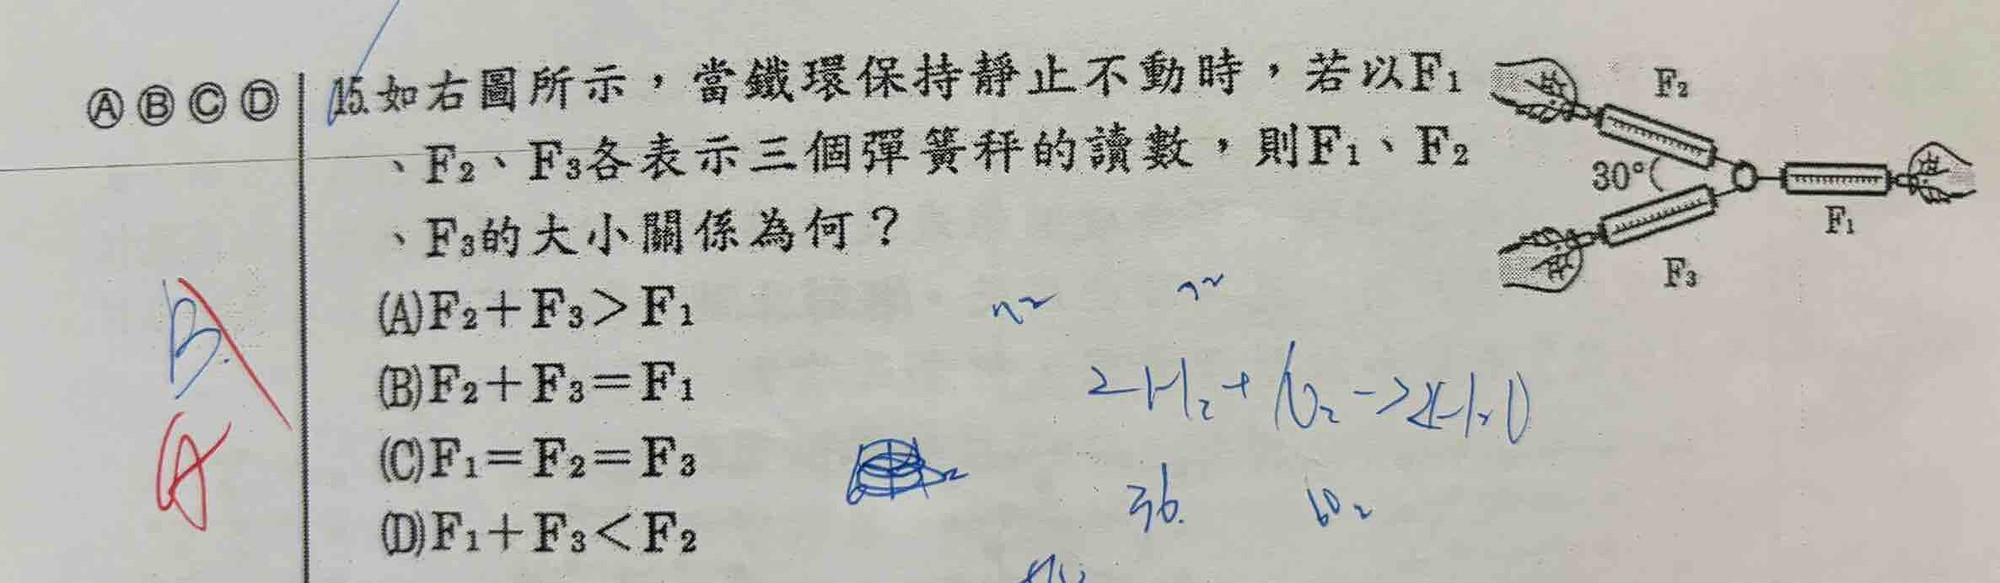 Ⓐ Ⓑ Ⓒ Ⓓ
15.如右圖所示，當鐵環保持靜止不動時，若以F₁
、F₂、F₃各表示三個彈簧秤的讀數，則F₁、F₂
、F₃的大小關係為何？
(A)F₂＋F₃＞F₁
(B)F₂＋F₃＝F₁
(C)F₁＝F₂＝F₃
(D)F₁＋F₃＜F₂
F₂
30°
F₁
F₃
B
A
36.